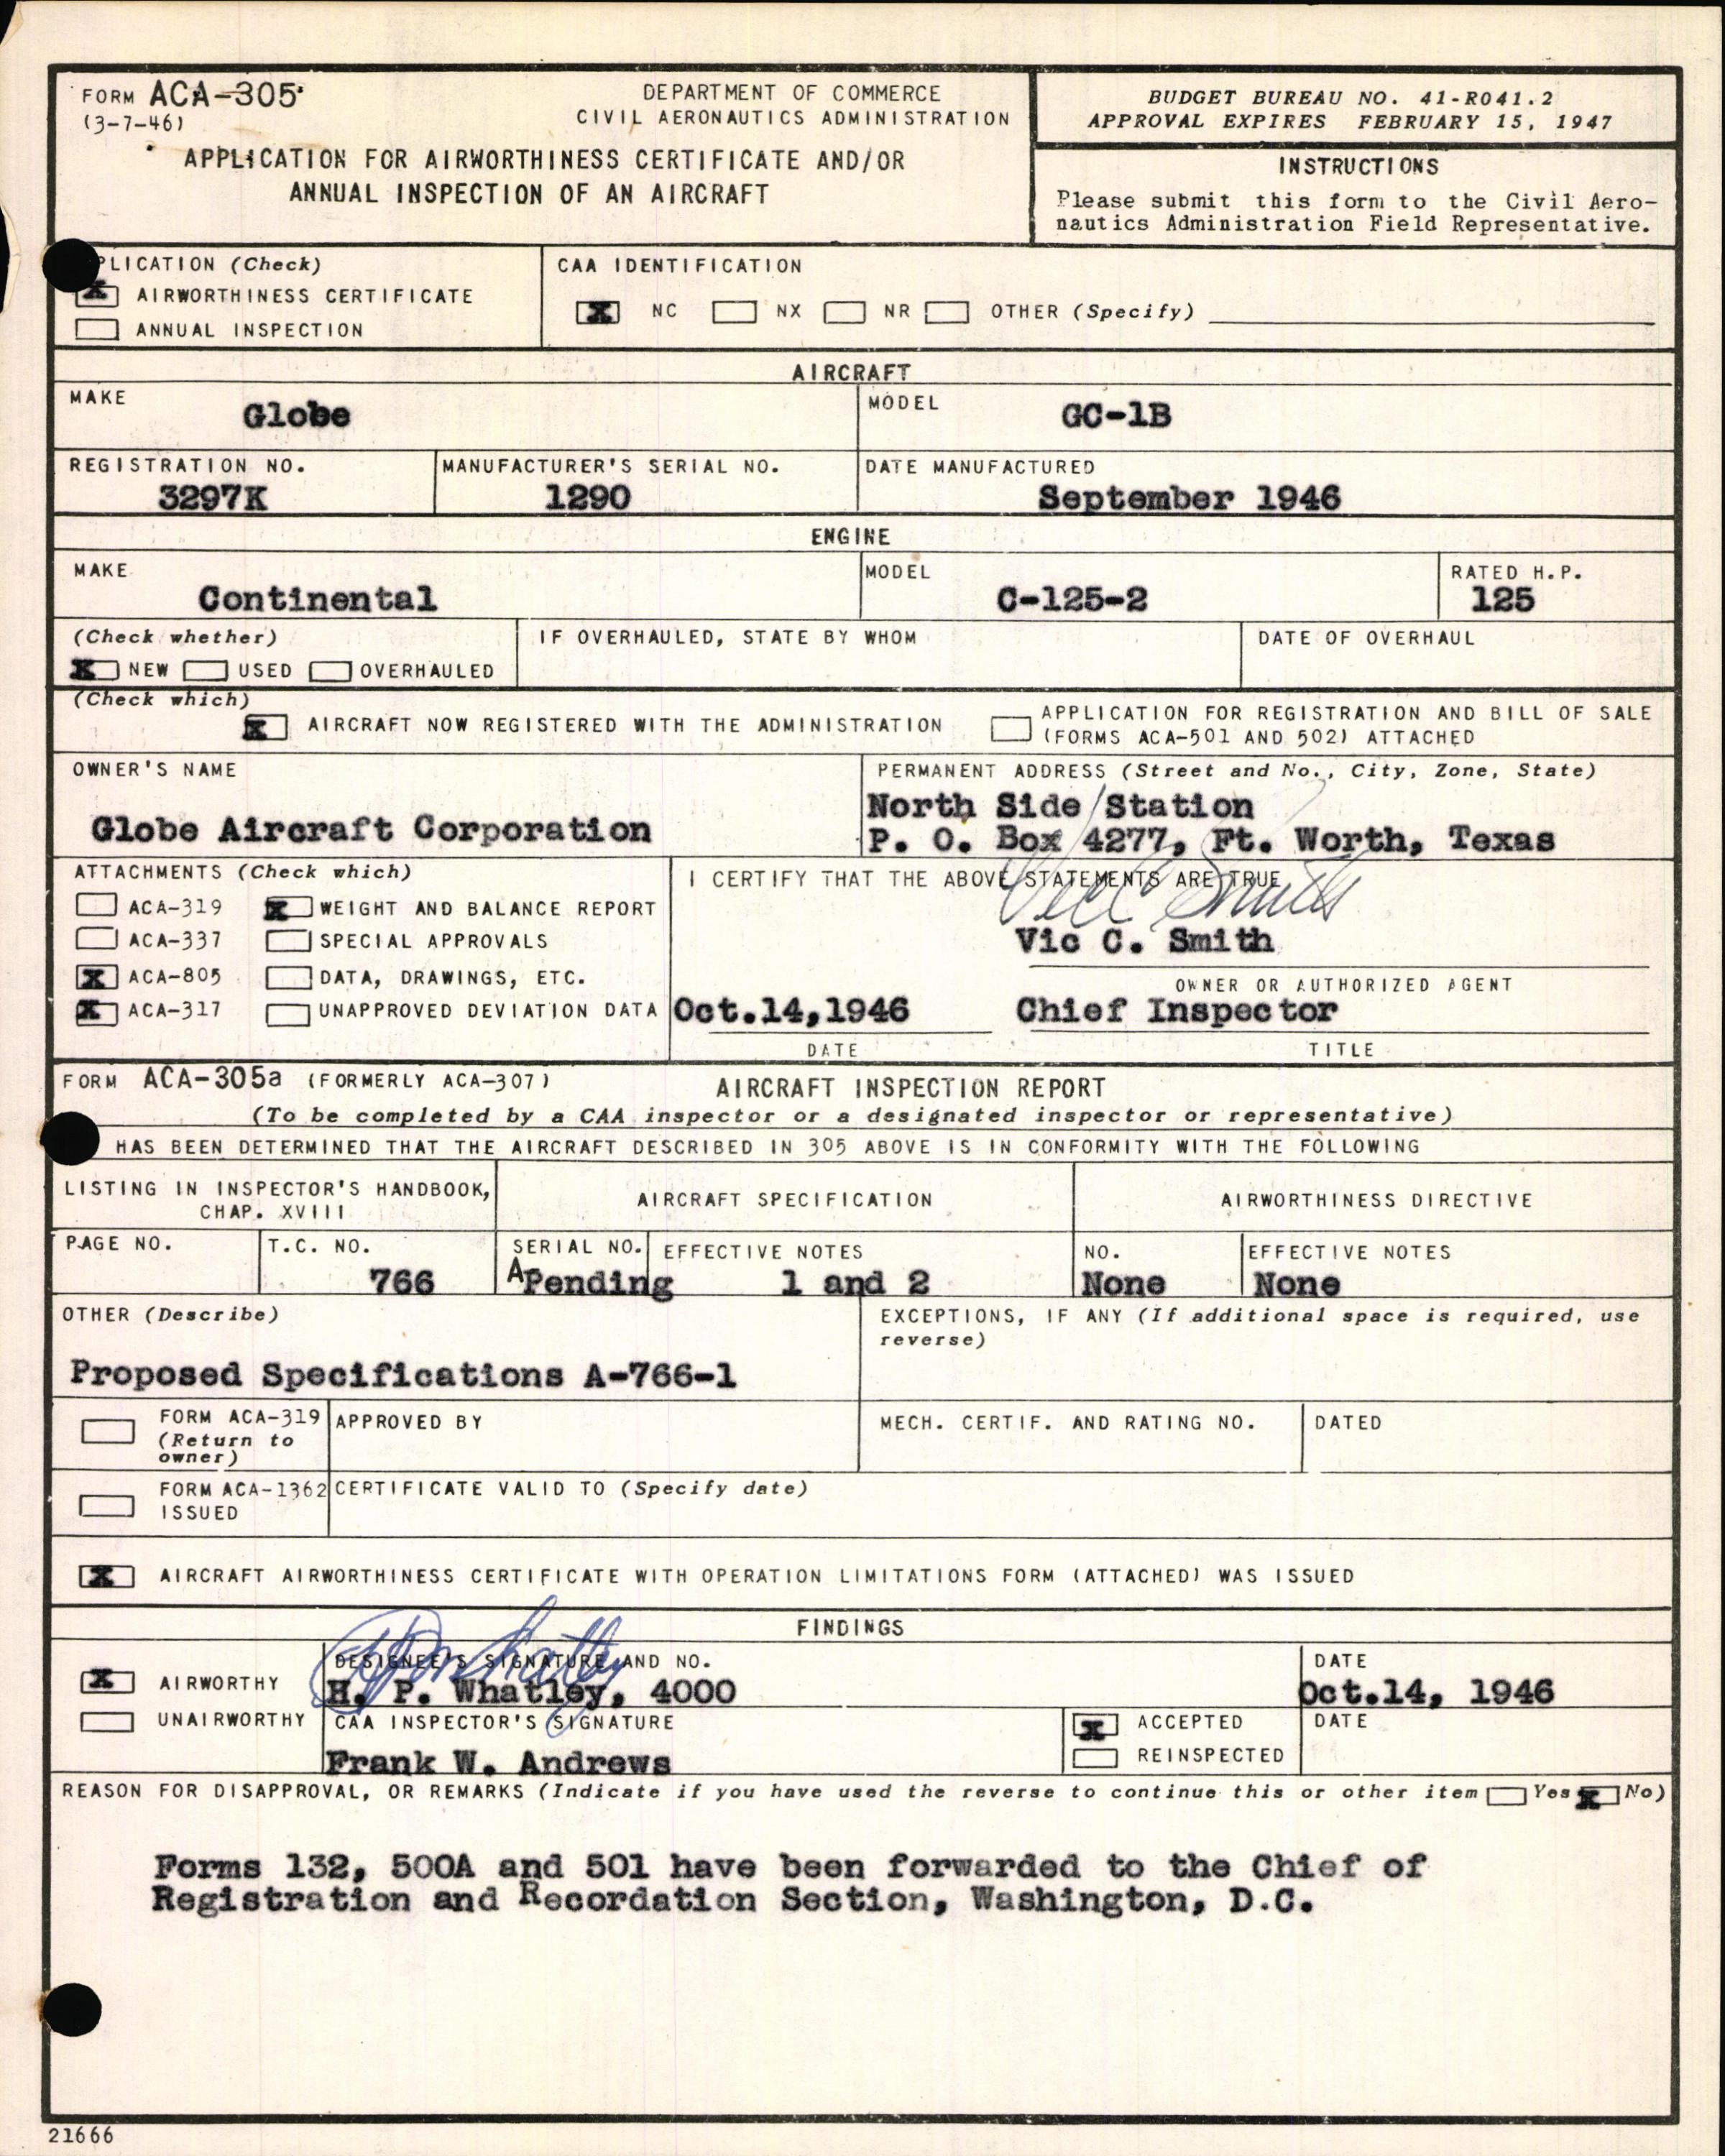 FORM ACA-305
(3-7-46)
DEPARTMENT OF COMMERCE
CIVIL AERONAUTICS ADMINISTRATION
APPLICATION FOR AIRWORTHINESS CERTIFICATE AND/OR
ANNUAL INSPECTION OF AN AIRCRAFT
BUDGET BUREAU NO. 41-R041.2
APPROVAL EXPIRES FEBRUARY 15, 1947
INSTRUCTIONS
Please submit this form to the Civil Aero-
nautics Administration Field Representative.
PLICATION (Check)
X AIRWORTHINESS CERTIFICATE
ANNUAL INSPECTION
CAA IDENTIFICATION
X NC NX NR OTHER (Specify)
AIRCRAFT
MAKE
Globe
MODEL
GC-1B
REGISTRATION NO.
3297K
MANUFACTURER'S SERIAL NO.
1290
DATE MANUFACTURED
September 1946
ENGINE
MAKE
Continental
MODEL
C-125-2
RATED H.P.
125
(Check whether)
X NEW USED OVERHAULED
IF OVERHAULED, STATE BY WHOM
DATE OF OVERHAUL
(Check which)
X AIRCRAFT NOW REGISTERED WITH THE ADMINISTRATION
APPLICATION FOR REGISTRATION AND BILL OF SALE
(FORMS ACA-501 AND 502) ATTACHED
OWNER'S NAME
Globe Aircraft Corporation
PERMANENT ADDRESS (Street and No., City, Zone, State)
North Side Station
P. O. Box 4277, Ft. Worth, Texas
ATTACHMENTS (Check which)
ACA-319 X WEIGHT AND BALANCE REPORT
ACA-337 SPECIAL APPROVALS
X ACA-805 DATA, DRAWINGS, ETC.
X ACA-317 UNAPPROVED DEVIATION DATA
I CERTIFY THAT THE ABOVE STATEMENTS ARE TRUE
Vic C Smith
Vic C. Smith
OWNER OR AUTHORIZED AGENT
Oct.14,1946 Chief Inspector
DATE TITLE
FORM ACA-305a (FORMERLY ACA-307) AIRCRAFT INSPECTION REPORT
(To be completed by a CAA inspector or a designated inspector or representative)
HAS BEEN DETERMINED THAT THE AIRCRAFT DESCRIBED IN 305 ABOVE IS IN CONFORMITY WITH THE FOLLOWING
LISTING IN INSPECTOR'S HANDBOOK,
CHAP. XVIII
AIRCRAFT SPECIFICATION
AIRWORTHINESS DIRECTIVE
PAGE NO.
T.C. NO.
766
SERIAL NO.
A-Pending
EFFECTIVE NOTES
1 and 2
NO.
None
EFFECTIVE NOTES
None
OTHER (Describe)
Proposed Specifications A-766-1
EXCEPTIONS, IF ANY (If additional space is required, use
reverse)
FORM ACA-319
(Return to
owner)
APPROVED BY
MECH. CERTIF. AND RATING NO.
DATED
FORM ACA-1362
ISSUED
CERTIFICATE VALID TO (Specify date)
X AIRCRAFT AIRWORTHINESS CERTIFICATE WITH OPERATION LIMITATIONS FORM (ATTACHED) WAS ISSUED
FINDINGS
X AIRWORTHY
UNAIRWORTHY
DESIGNEE'S SIGNATURE AND NO.
HP Whatley
H. P. Whatley, 4000
DATE
Oct.14, 1946
CAA INSPECTOR'S SIGNATURE
Frank W. Andrews
X ACCEPTED
REINSPECTED
DATE
REASON FOR DISAPPROVAL, OR REMARKS (Indicate if you have used the reverse to continue this or other item Yes X No)
Forms 132, 500A and 501 have been forwarded to the Chief of
Registration and Recordation Section, Washington, D.C.
21666